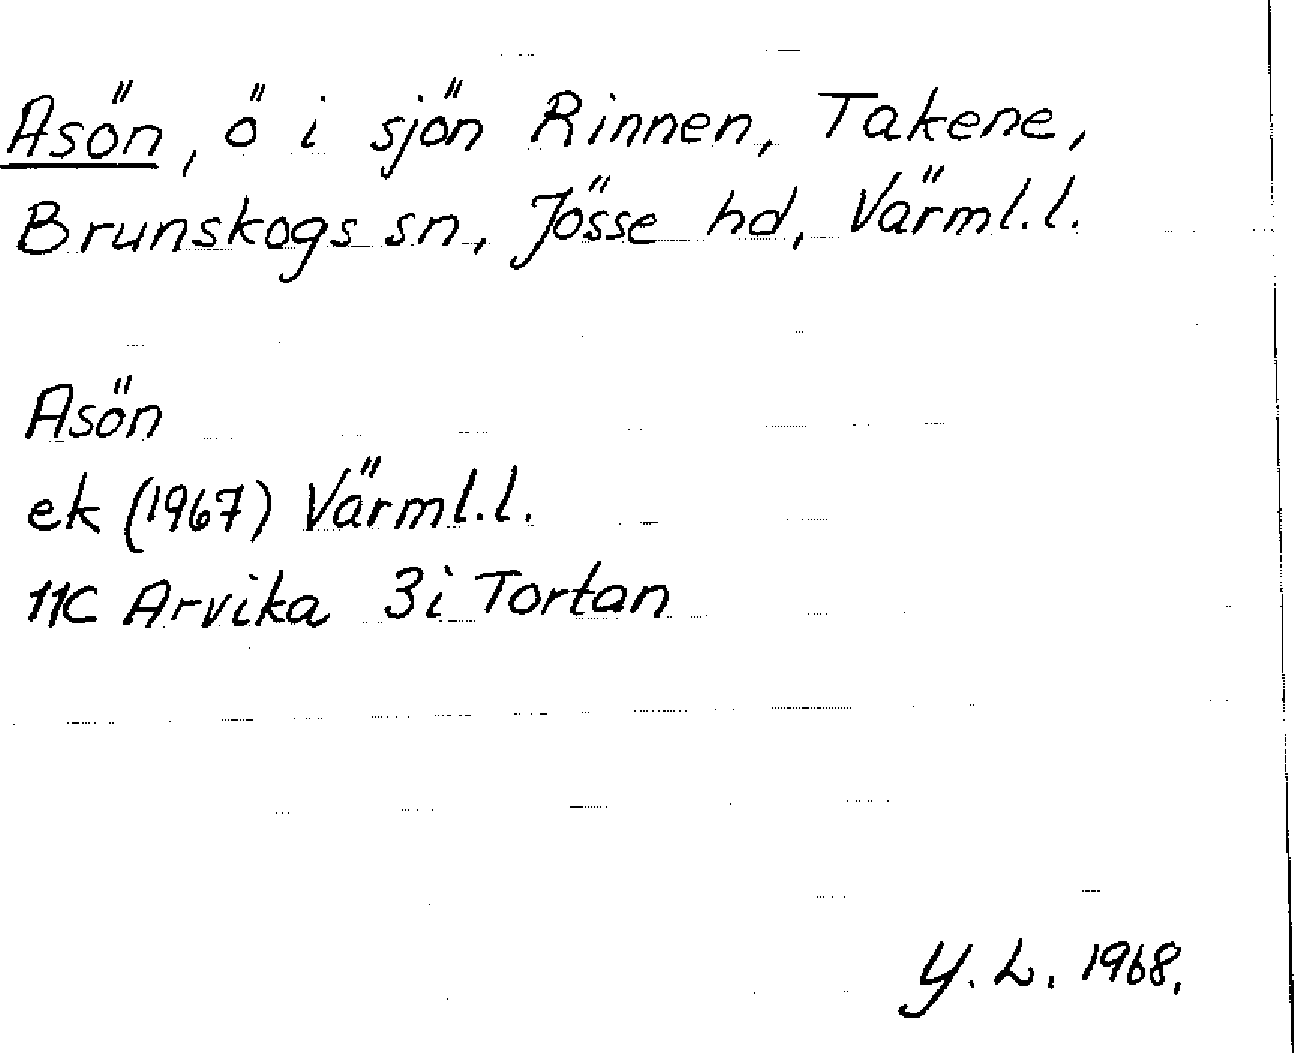 Asön, ö i sjön Rinnen, Takene,
Brunskogs sn, Jösse hd, Värml.l.
Asön
ek (1967) Värml.l.
11C Arvika 3i Tortan
Y. L. 1968.